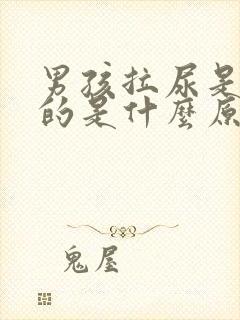 男孩拉尿是
的是什麼原
鬼屋